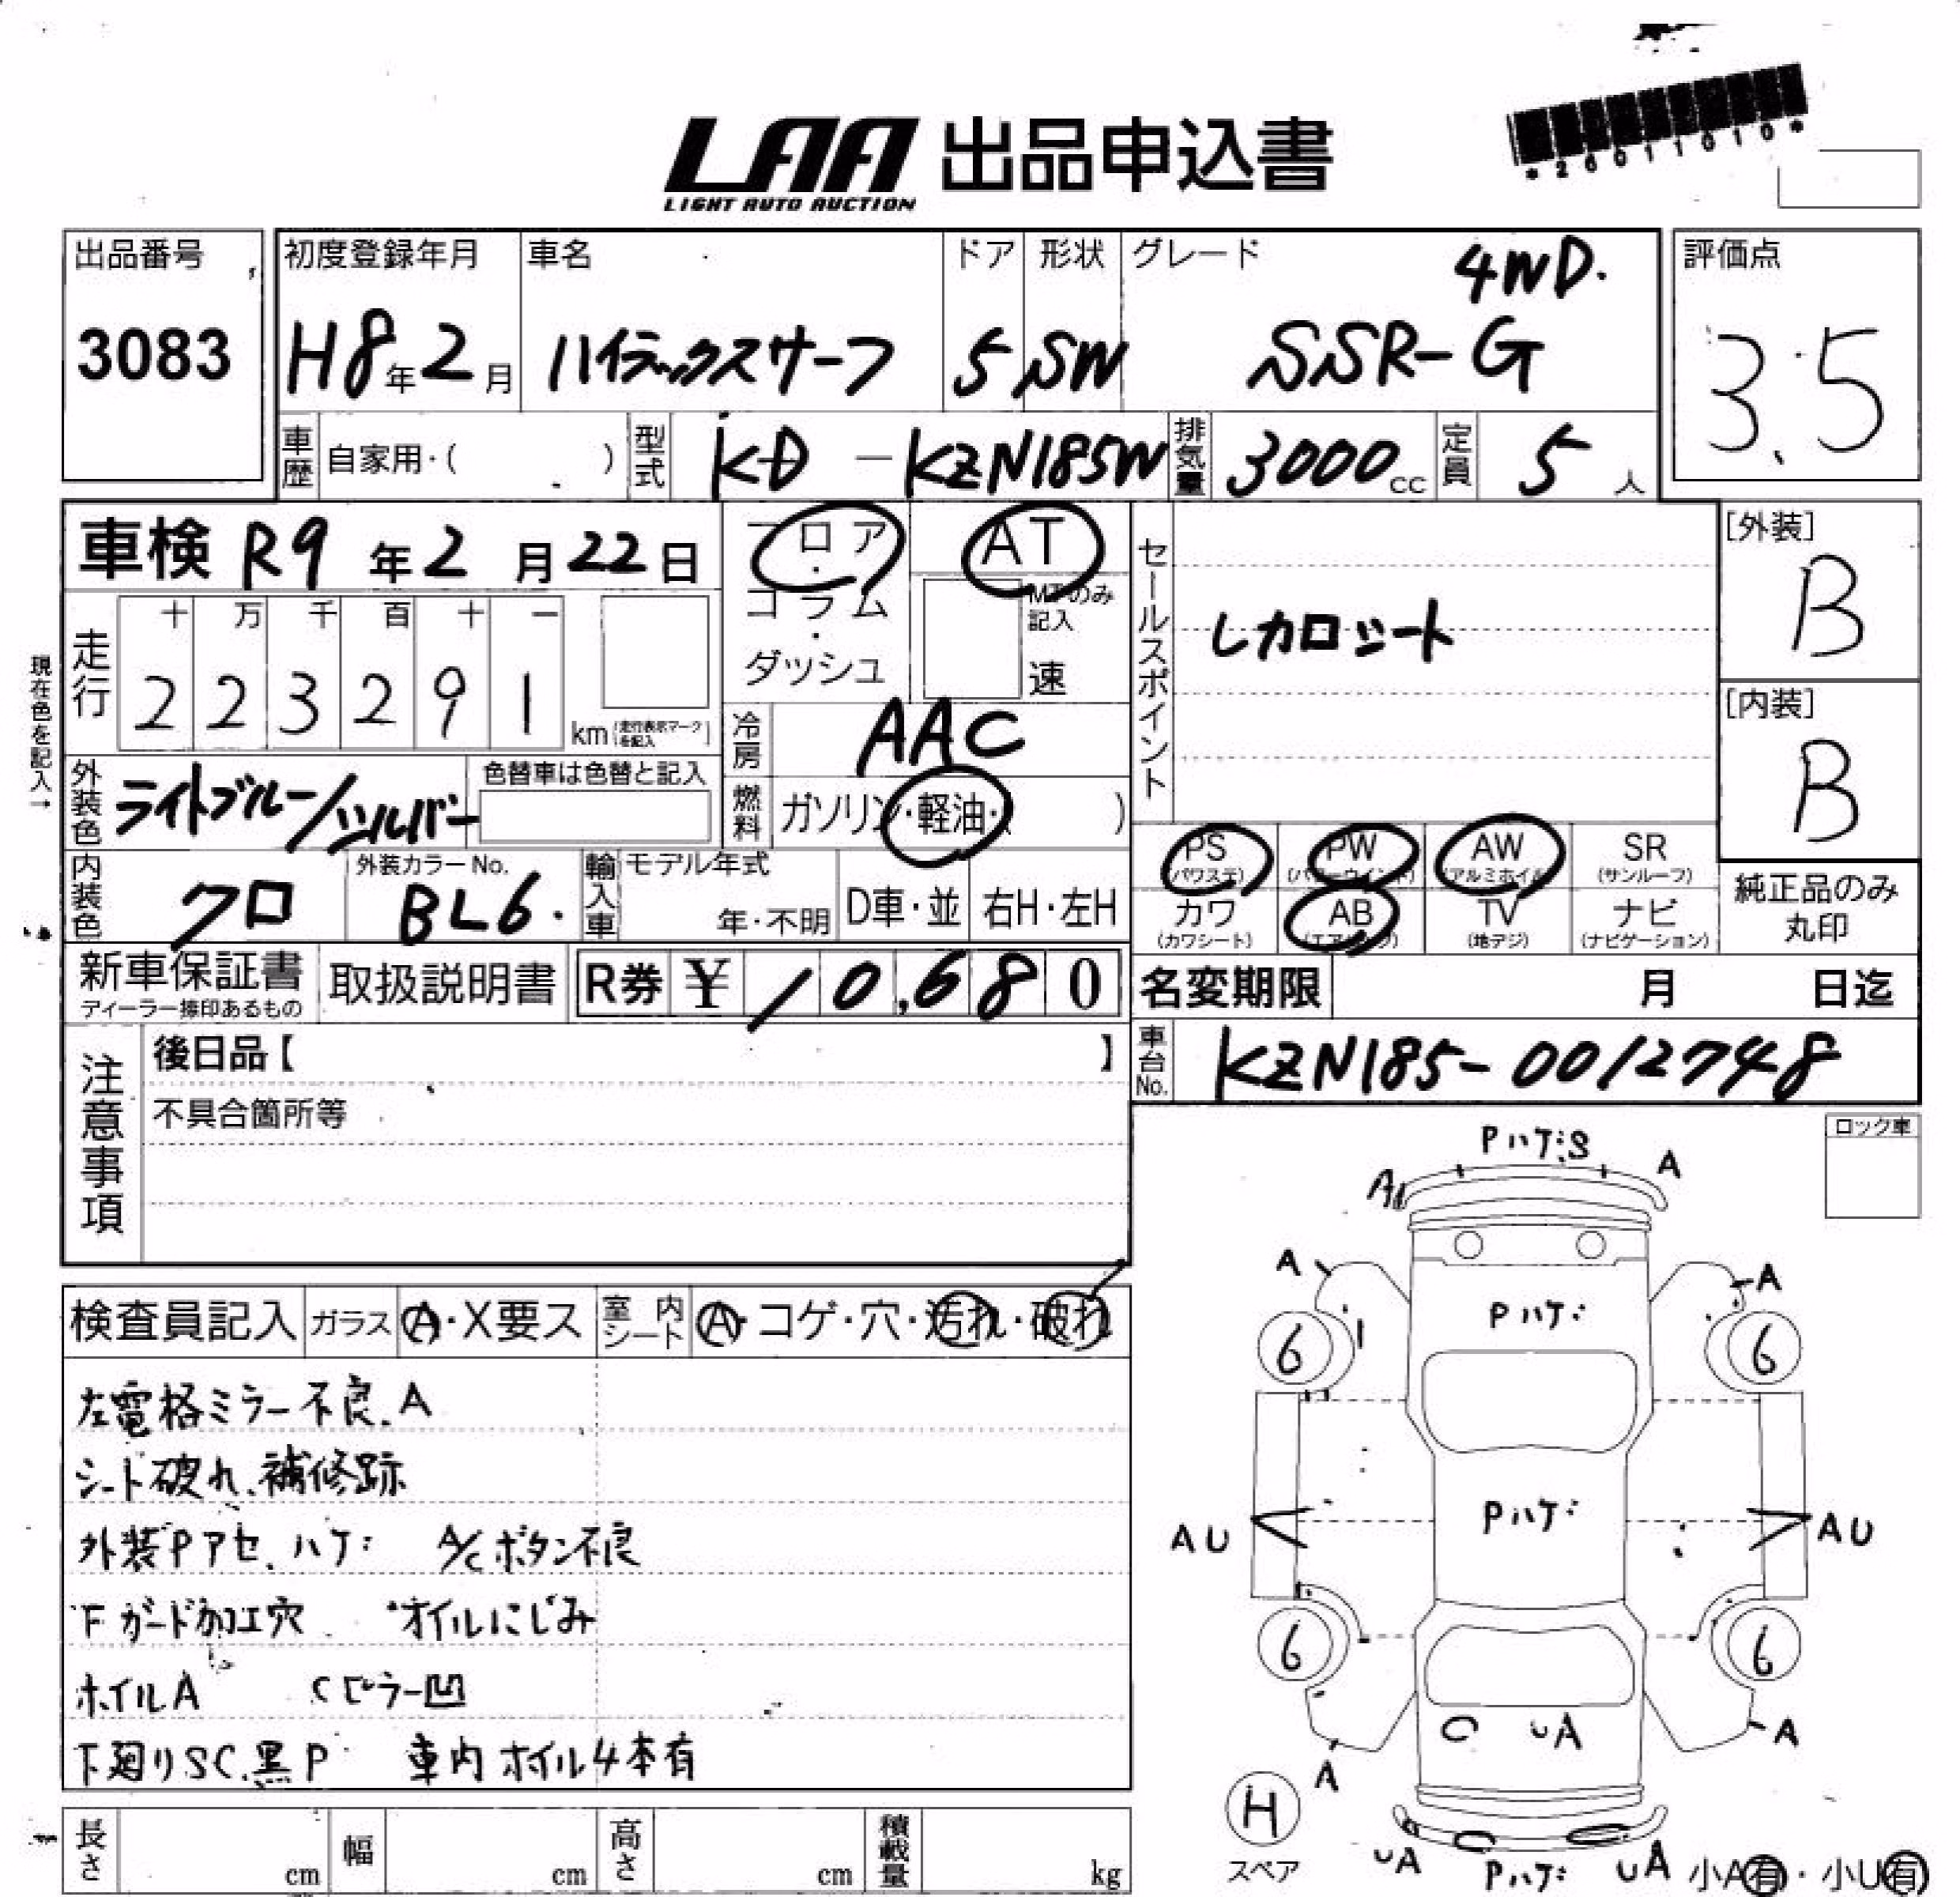 LAA 出品申込書
LIGHT AUTO AUCTION
*26011010*
出品番号
3083
初度登録年月
H8年2月
車名
ハイラックスサーフ
ドア
5
形状
SW
グレード
4WD.
SSR-G
評価点
3.5
車歴 自家用・( )
型式 KD-KZN185W
排気量 3000cc
定員 5人
車検 R9年2月22日
フロア・コラム・ダッシュ
AT
MTのみ記入
速
セールスポイント
レカロシート
[外装]
B
[内装]
B
現在色を記入→
走行
十 万 千 百 十 一
2 2 3 2 9 1
km (走行表示マークを記入)
冷房 AAC
外装色 ライトブルー/シルバー
色替車は色替と記入
燃料 ガソリン・軽油・( )
PS (パワステ)
PW (パワーウインド)
AW (アルミホイル)
SR (サンルーフ)
カワ (カワシート)
AB (エアバッグ)
TV (地デジ)
ナビ (ナビゲーション)
純正品のみ丸印
内装色 クロ
外装カラーNo. BL6.
輸入車 モデル年式 年・不明
D車・並
右H・左H
新車保証書
ディーラー捺印あるもの
取扱説明書
R券 ¥10,680
名変期限 月 日迄
車台No. KZN185-0012748
注意事項
後日品【 】
不具合箇所等
ロック車
検査員記入
ガラス A・X要ス
室内シート A・コゲ・穴・汚れ・破れ
左電格ミラー不良.A
シート破れ、補修跡
外装Pアセ、ハゲ A/Cボタン不良
Fガード加工穴 オイルにじみ
ホイルA Cピラー凹
下廻りSC.黒P 車内ホイル4本有
Pハゲ.S
A
A
A
A
Pハゲ
6
6
Pハゲ
AU
AU
6
6
C UA
A
A
H
スペア
UA
Pハゲ
UA
小A有・小U有
長さ cm
幅 cm
高さ cm
積載量 kg